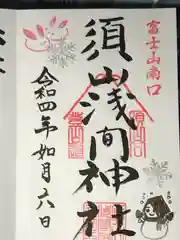 富士山南口
須山浅間神社
令和四年如月六日